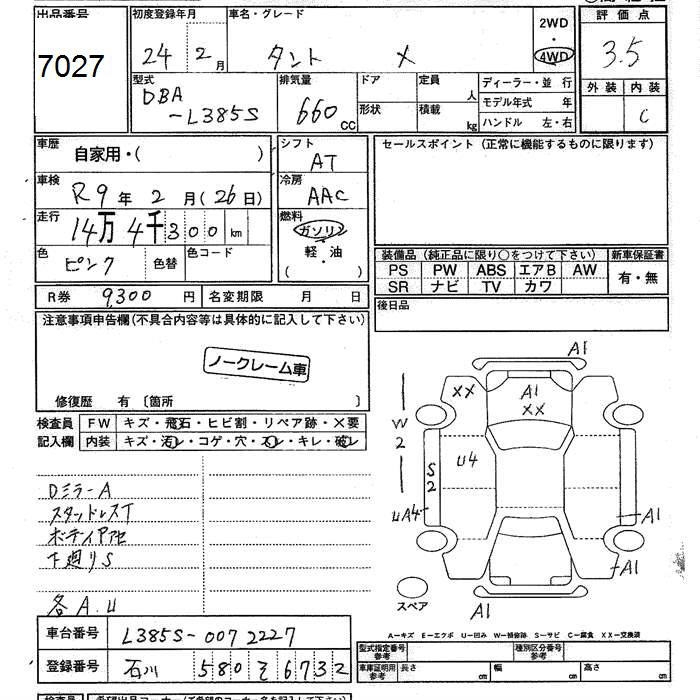 出品番号
7027
初度登録年月
24年2月
車名・グレード
タント X
2WD
・
4WD
評価点
3.5
外装 内装
C
型式
DBA
-L385S
排気量
660cc
ドア
形状
定員 人
積載 kg
ディーラー・並行
モデル年式 年
ハンドル 左・右
車歴
自家用・( )
車検
R9年2月(26日)
走行
14万4千300km
色
ピンク
色替
色コード
シフト
AT
冷房
AAC
燃料
ガソリン
軽・油
( )
セールスポイント(正常に機能するものに限ります)
装備品(純正品に限り○をつけて下さい)
新車保証書
PS PW ABS エアB AW
SR ナビ TV カワ
有・無
R券 9,300円
名変期限 月 日
後日品
注意事項申告欄(不具合内容等は具体的に記入して下さい)
ノークレーム車
修復歴 有〔箇所 〕
検査員
記入欄
FW キズ・飛石・ヒビ割・リペア跡・×要
内装 キズ・汚レ・コゲ・穴・スレ・キレ・破レ
Dミラ-A
スタッドレスT
ボディ下廻りS
各A.U
A1
XX
A1
XX
W
2
U4
S
2
UA4
A1
A1
A1
スペア
A-キズ E-エクボ U-凹み W-補修跡 S-サビ C-腐食 XX-交換済
車台番号
L385S-0072227
登録番号
石川 580 そ 6732
型式指定番号
参考
種別区分番号
参考
車庫証明用
参考
長さ cm
幅 cm
高さ cm